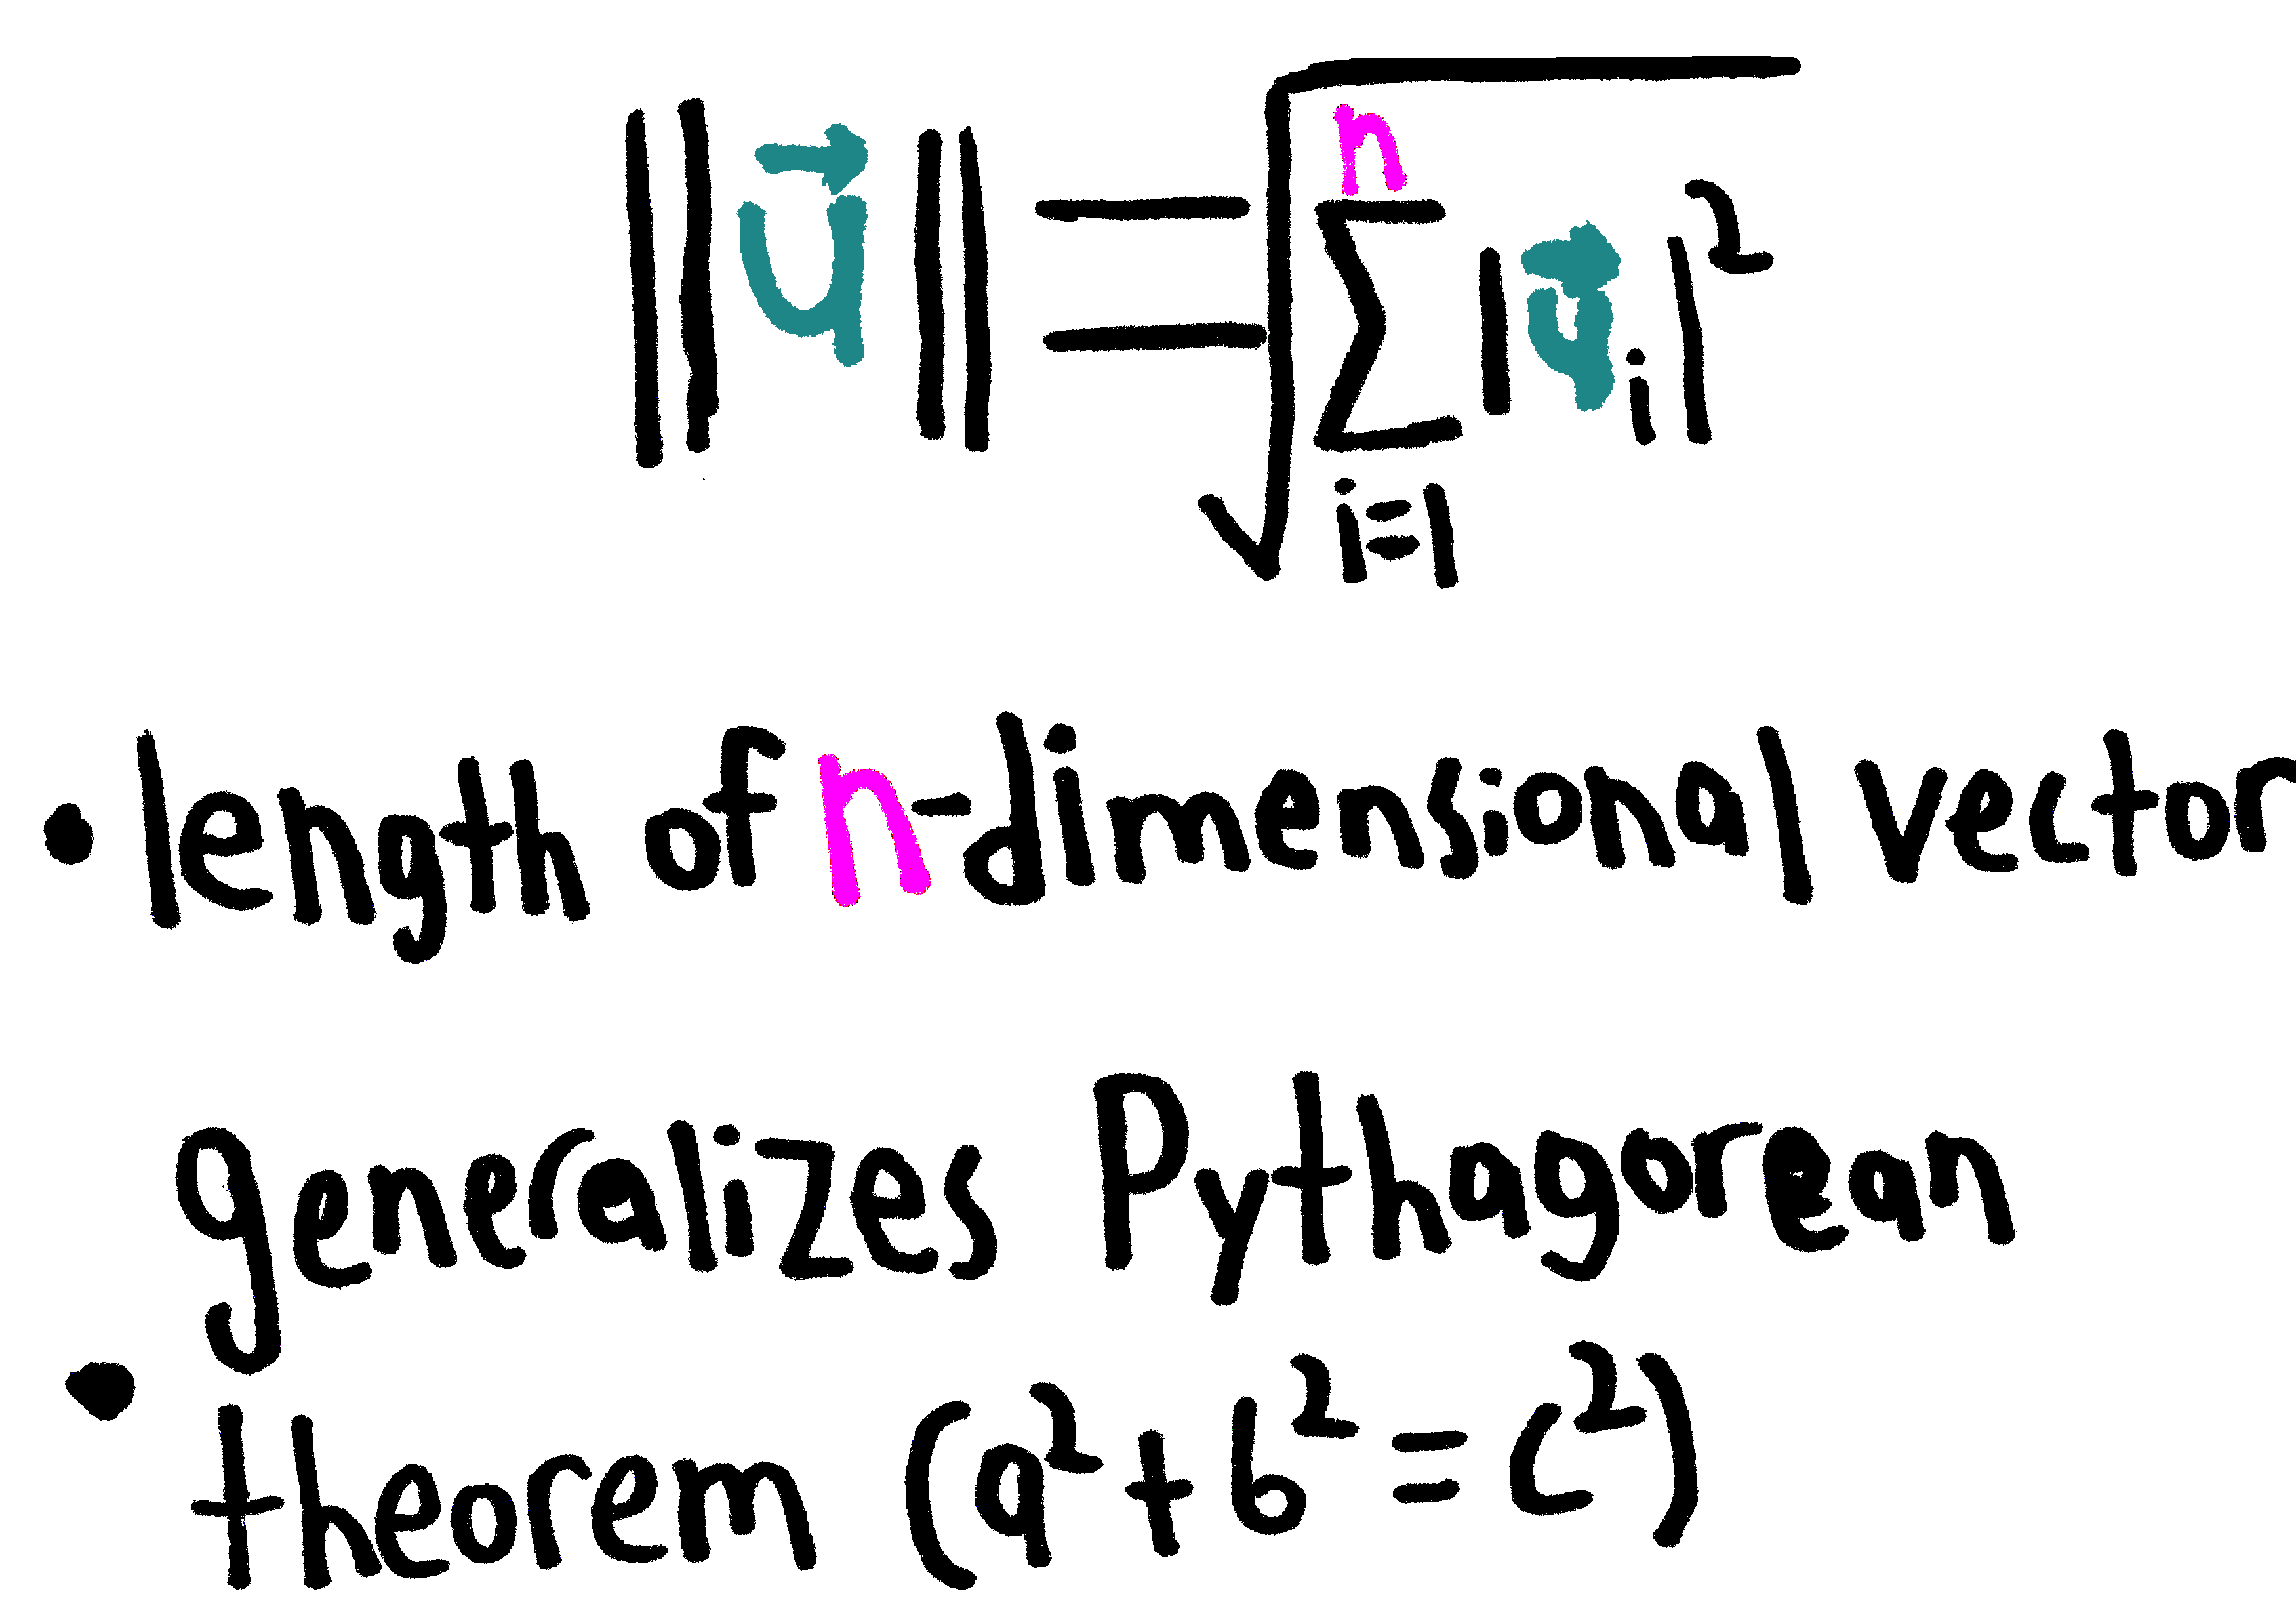 ||u⃗|| = √(∑ⁿᵢ₌₁ |u⃗ᵢ|²)
• length of n-dimensional vector
generalizes Pythagorean
• theorem (a²+b²=c²)